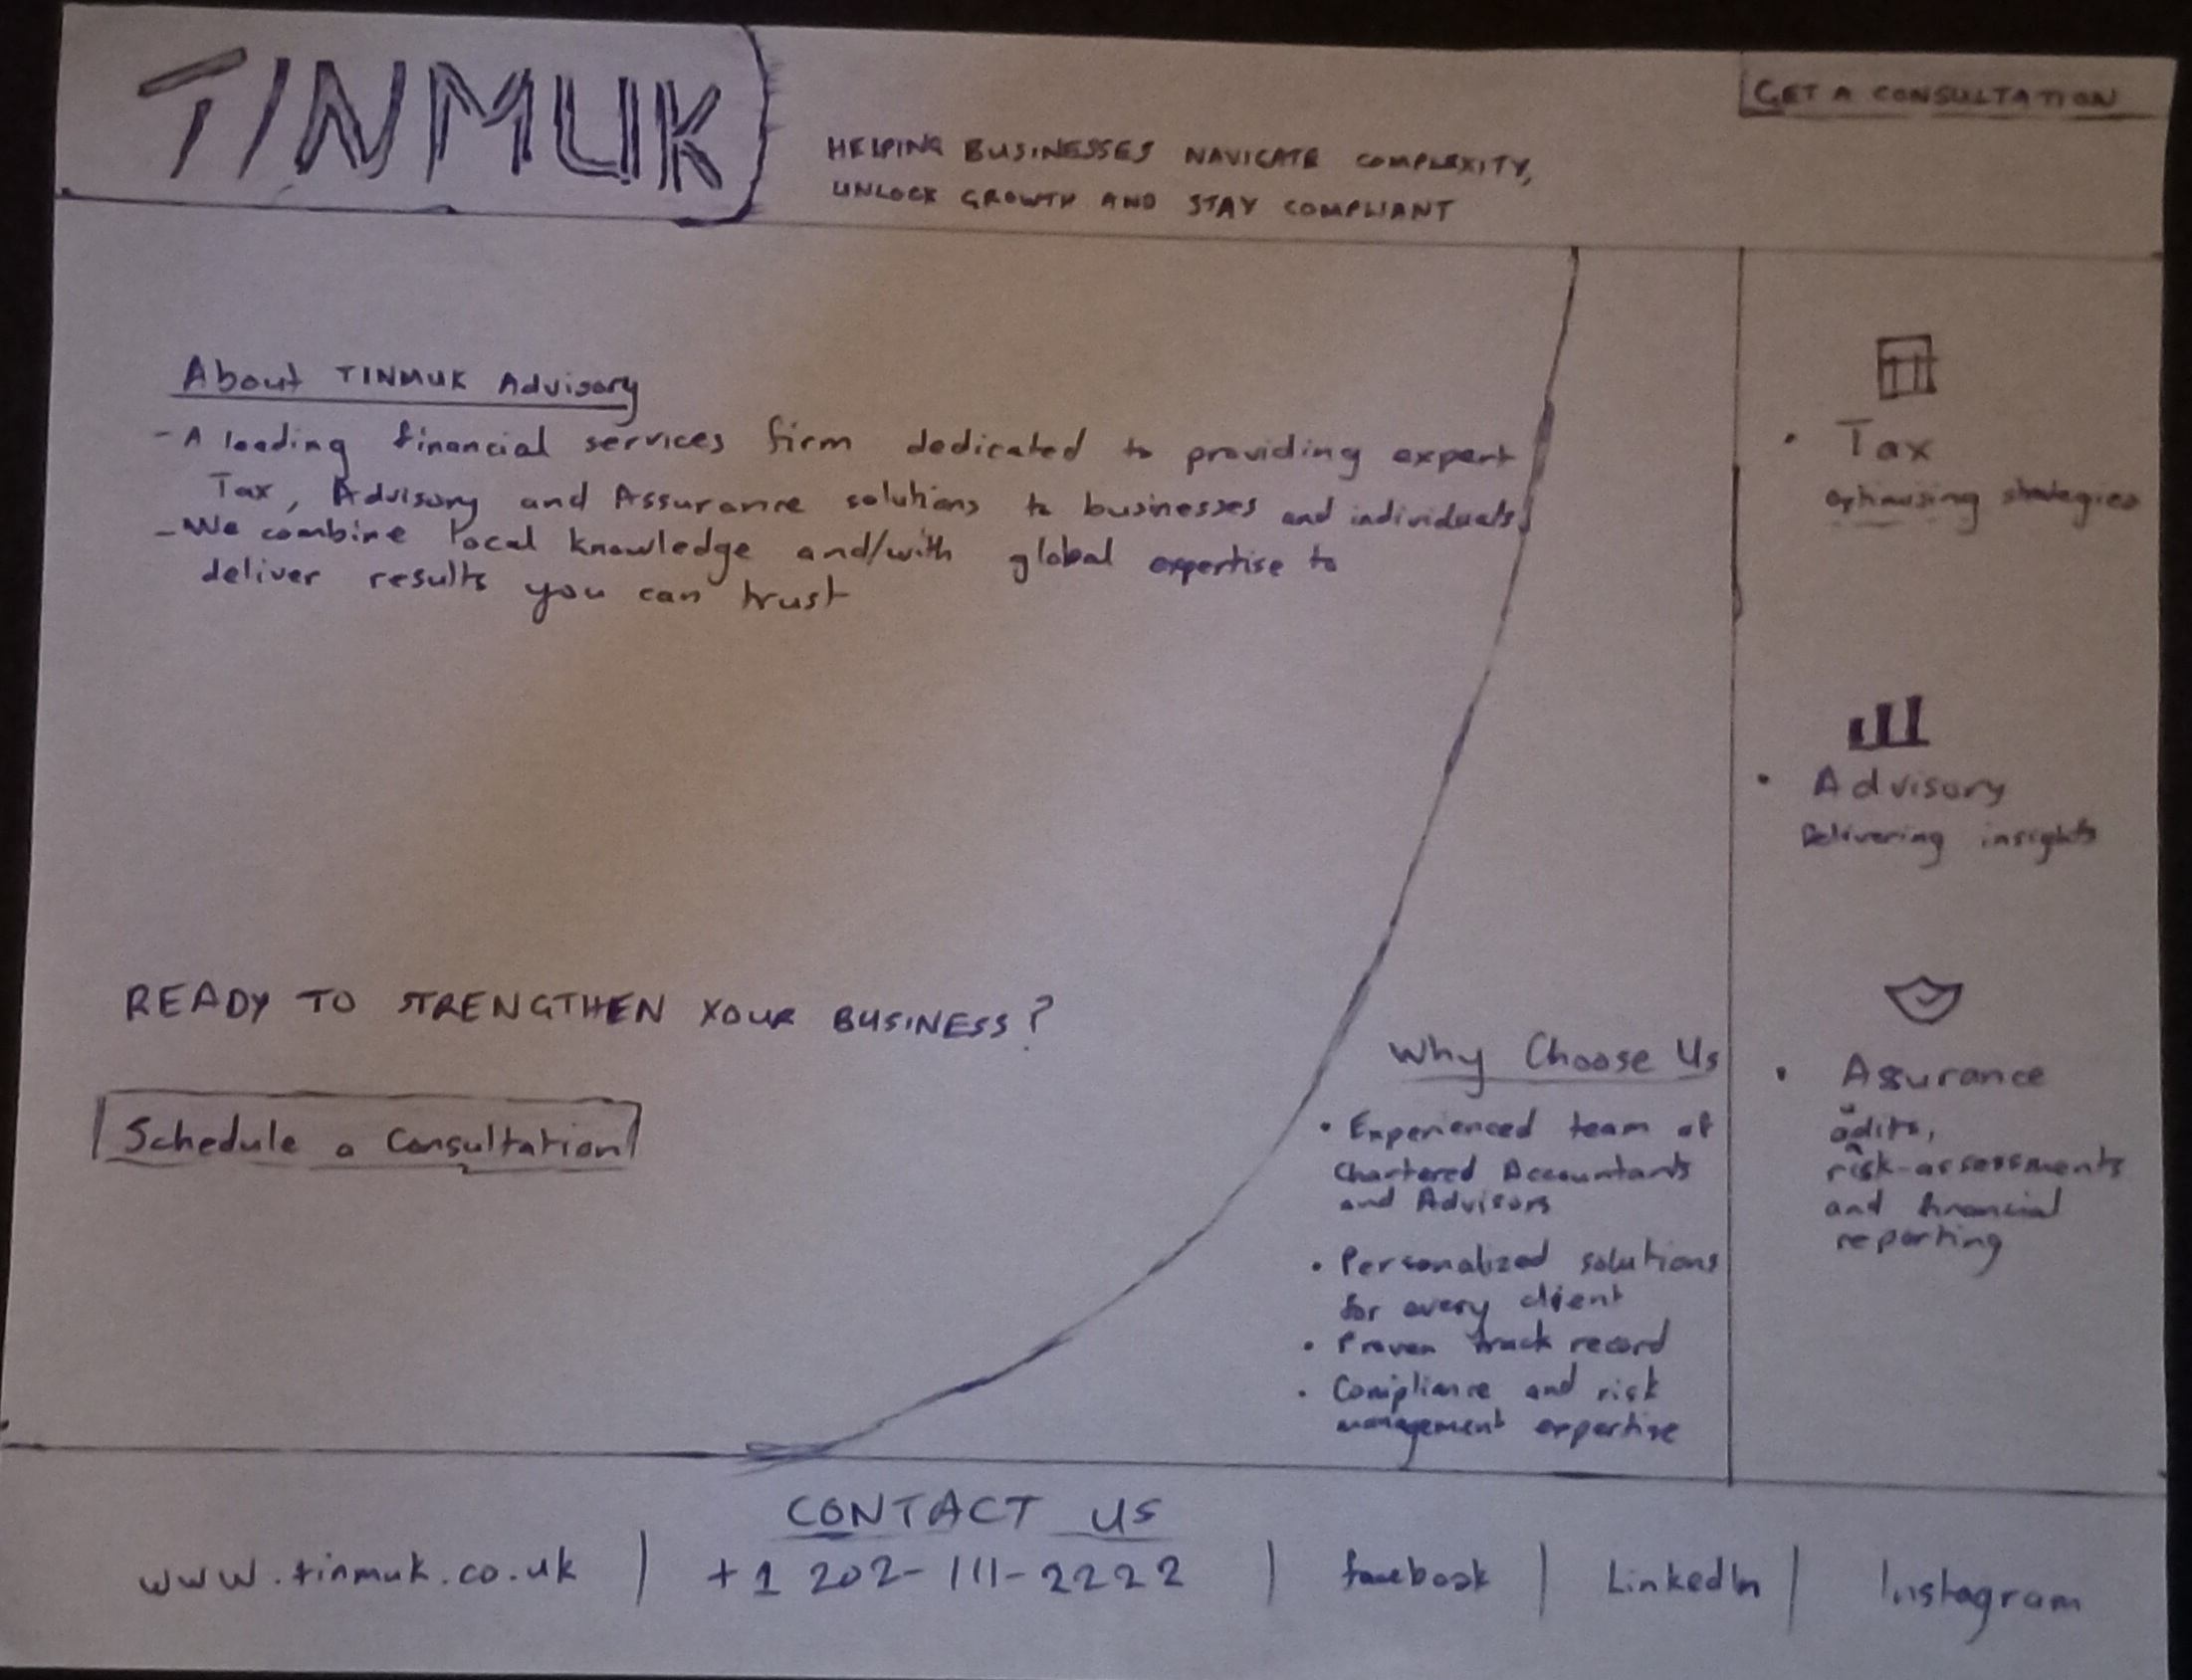 TINMUK
GET A CONSULTATION
HELPING BUSINESSES NAVIGATE COMPLEXITY,
UNLOCK GROWTH AND STAY COMPLIANT
About TINMUK Advisory
- A leading financial services firm dedicated to providing expert
Tax, Advisory and Assurance solutions to businesses and individuals.
- We combine local knowledge and/with global expertise to
deliver results you can trust
READY TO STRENGTHEN YOUR BUSINESS?
Schedule a Consultation
Why Choose Us
• Experienced team of
Chartered Accountants
and Advisors
• Personalized solutions
for every client
• Proven track record
• Compliance and risk
management expertise
• Tax
optimising strategies
• Advisory
Delivering insights
• Assurance
risk-assessments
and financial
reporting
CONTACT US
www.tinmuk.co.uk | +1 202-111-2222 | facebook | LinkedIn | Instagram